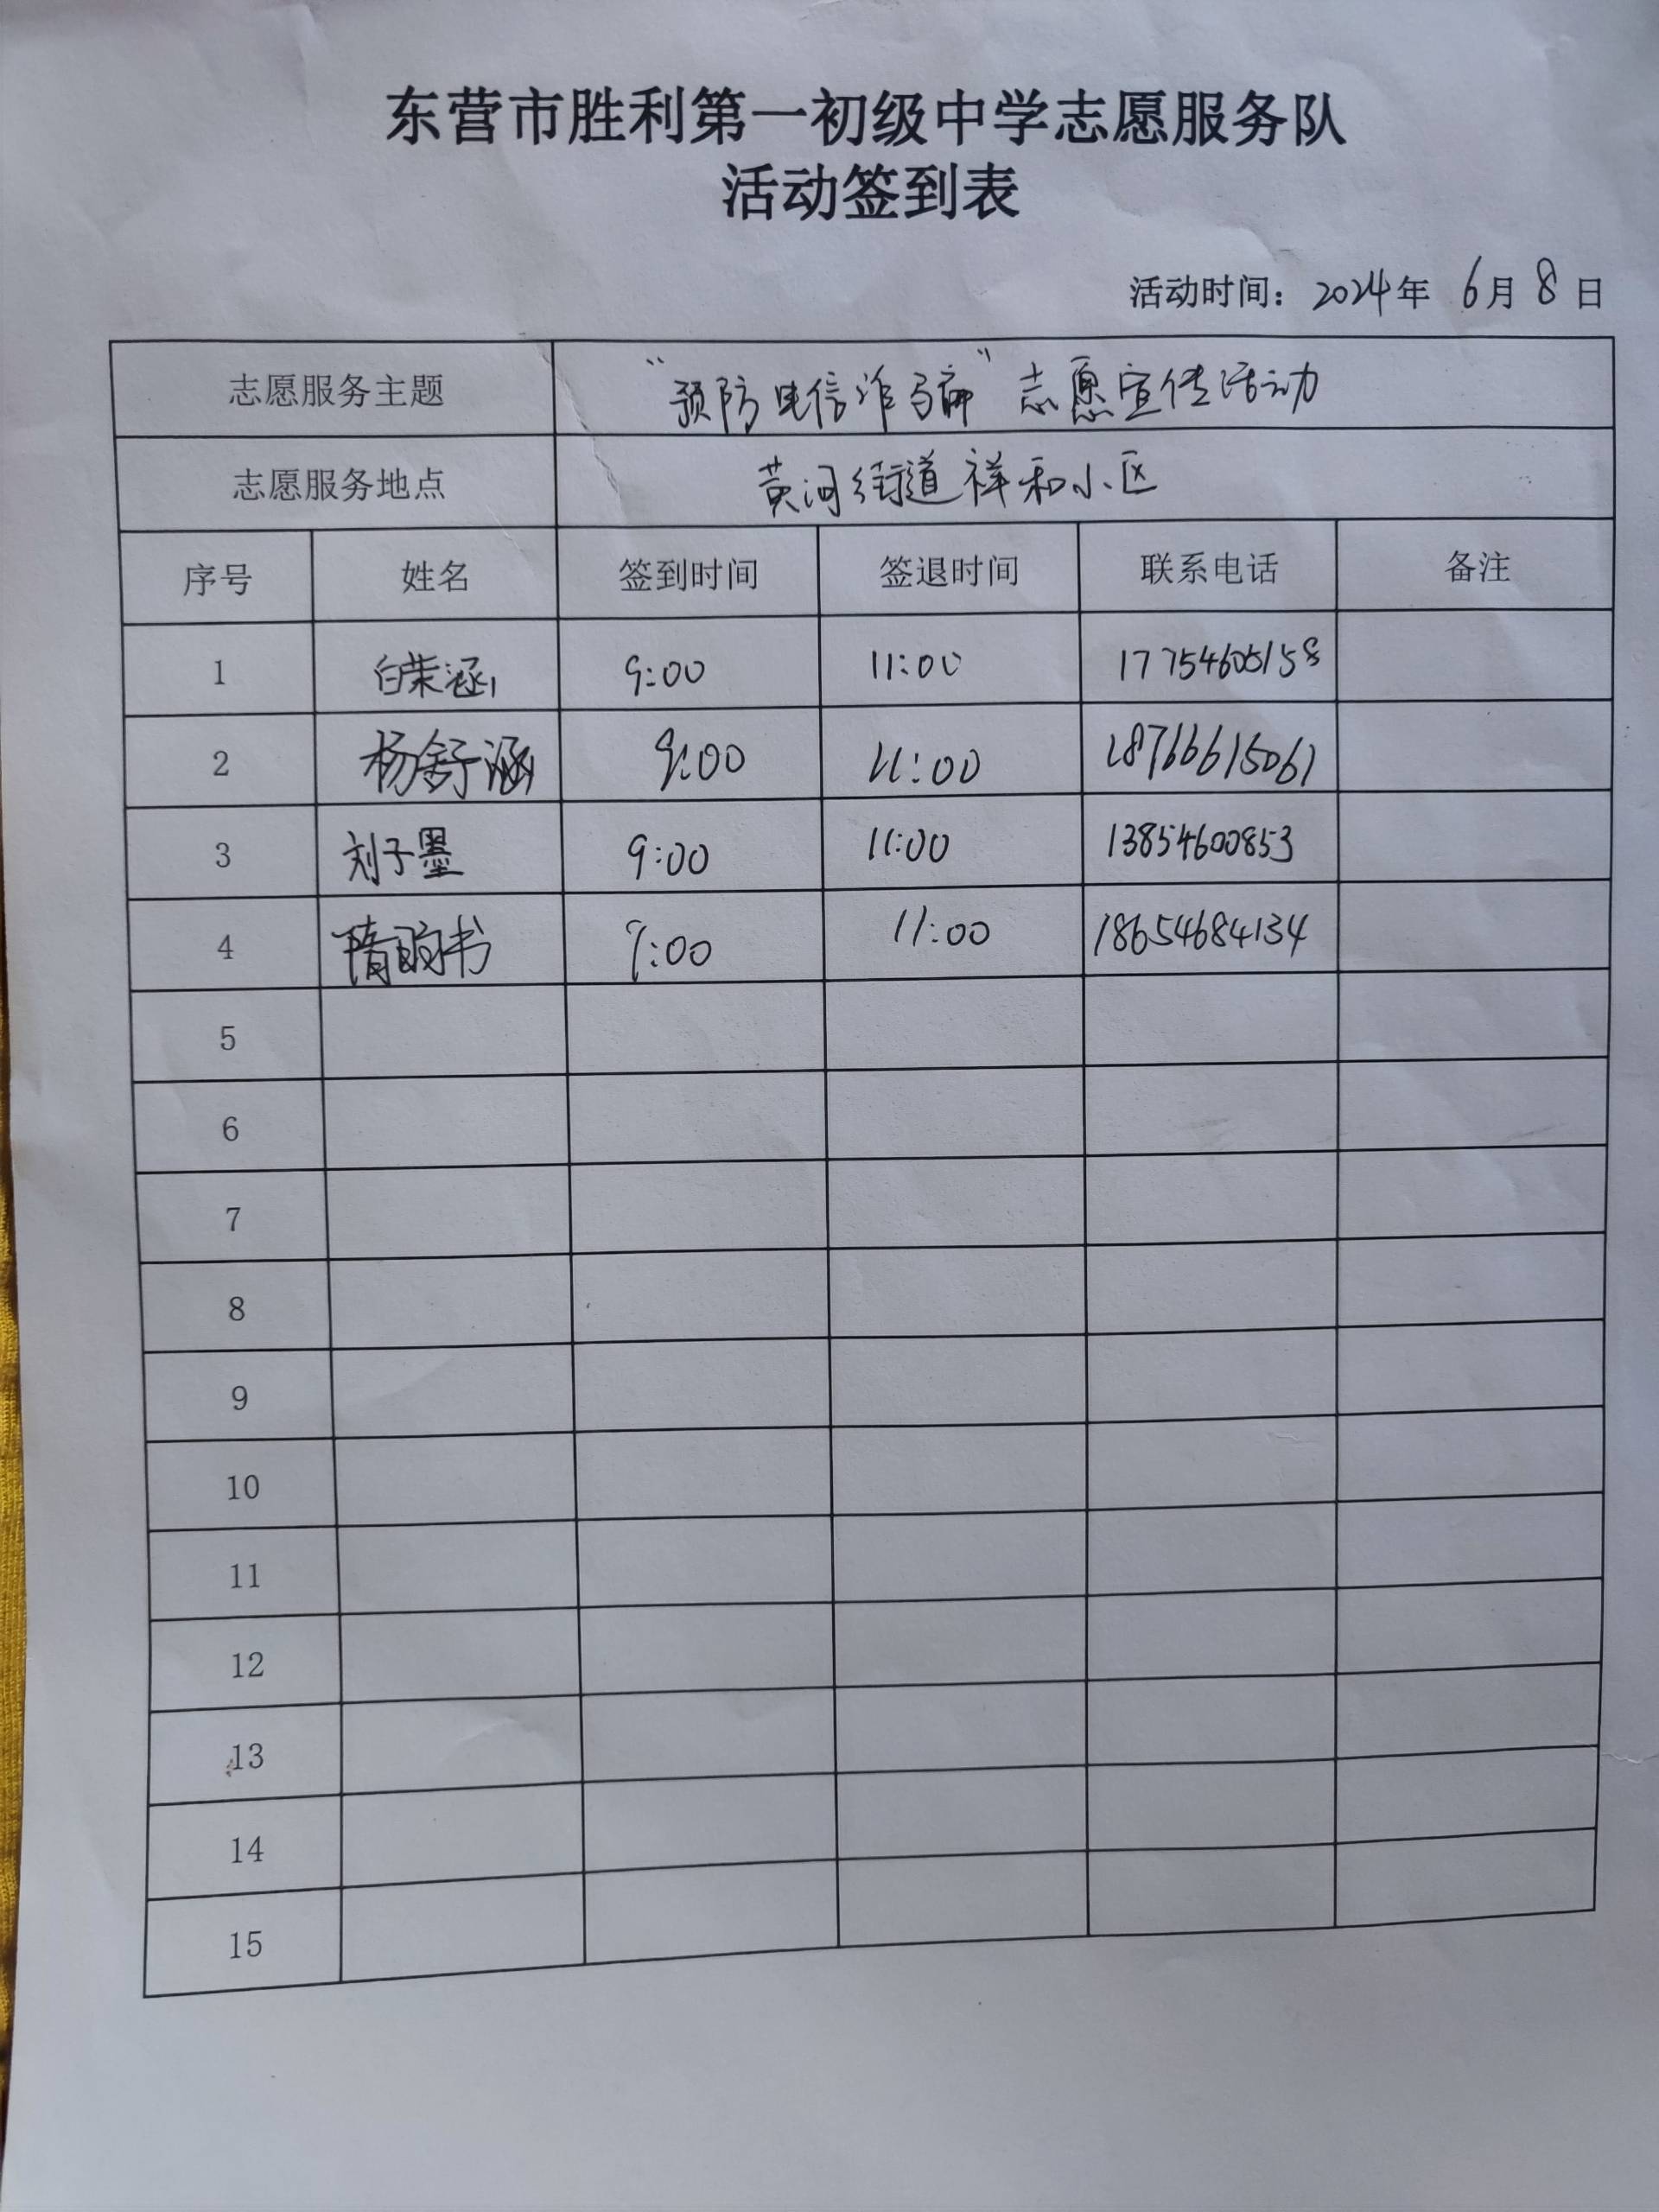 东营市胜利第一初级中学志愿服务队
活动签到表
活动时间：2024年 6月 8日
志愿服务主题 “预防电信诈骗”志愿宣传活动
志愿服务地点 黄河街道祥和小区
序号 姓名 签到时间 签退时间 联系电话 备注
1 白荣涵 9:00 11:00 17754605158
2 杨舒涵 9:00 11:00 18766615061
3 刘子墨 9:00 11:00 13854600853
4 隋 书 9:00 11:00 18654684134
5
6
7
8
9
10
11
12
13
14
15